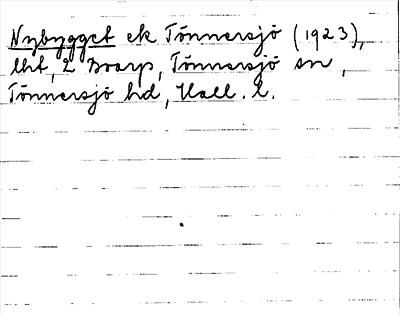 Nybygget ek Tönnersjö (1923),
lht, 2 Boarp, Tönnersjö sn,
Tönnersjö hd, Hall. l.